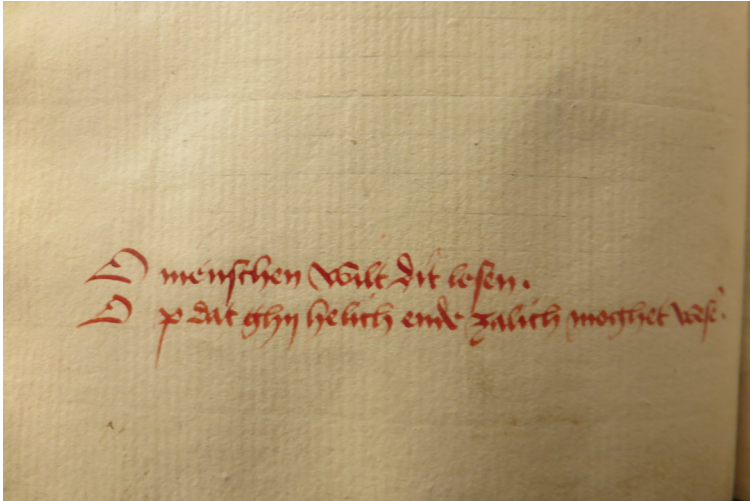 O menschen wilt dit lesen.
Op dat ghij helich ende zalich moghet wesē.